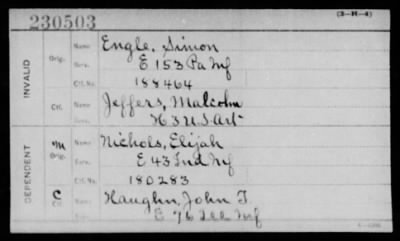 230503
(3-H-4)
INVALID
Orig.
Name Engle, Simon
Serv. E 153 Pa Inf
Ctf. No. 188464
Ctf. Name Jeffers, Malcolm
H 3 U.S. Art
DEPENDENT
M
Orig.
Name Nichols, Elijah
Serv. E 43 Ind Inf
Ctf. No. 180283
C
Ctf. Name Haughn, John T.
E 76 Ill Inf